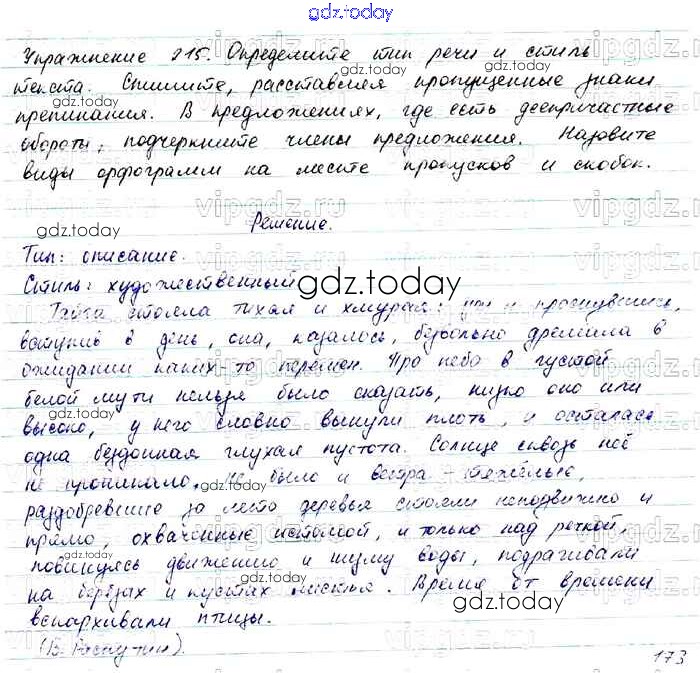 gdz.today
Упражнение 215. Определите тип речи и стиль
текста. Спишите, расставляя пропущенные знаки
препинания. В предложениях, где есть деепричастные
обороты, подчеркните члены предложения. Назовите
виды орфограмм на месте пропусков и скобок.
Решение.
Тип: описание.
Стиль: художественный
gdz.today
Тайга стояла тихая и хмурая: уже и проснувшись,
вступив в день, она, казалось, безвольно дремала в
ожидании каких то перемен. Про небо в густой
белой мути нельзя было сказать, низко оно или
высоко, у него словно вынули плоть, и осталась
одна бездонная глухая пустота. Солнце сквозь неё
не проникало, не было и ветра – тяжёлые,
раздобревшие за лето деревья стояли неподвижно и
прямо, охваченные истомой, и только над речкой,
повинуясь движению и шуму воды, подрагивали
на берёзах и кустах листья. Время от времени
вспархивали птицы.
(В. Распутин).
173